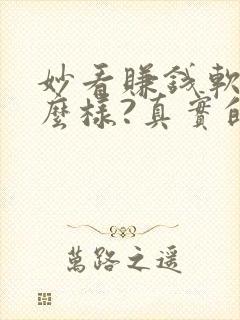 妙看賺錢軟
麼樣?真實的
萬路之遥